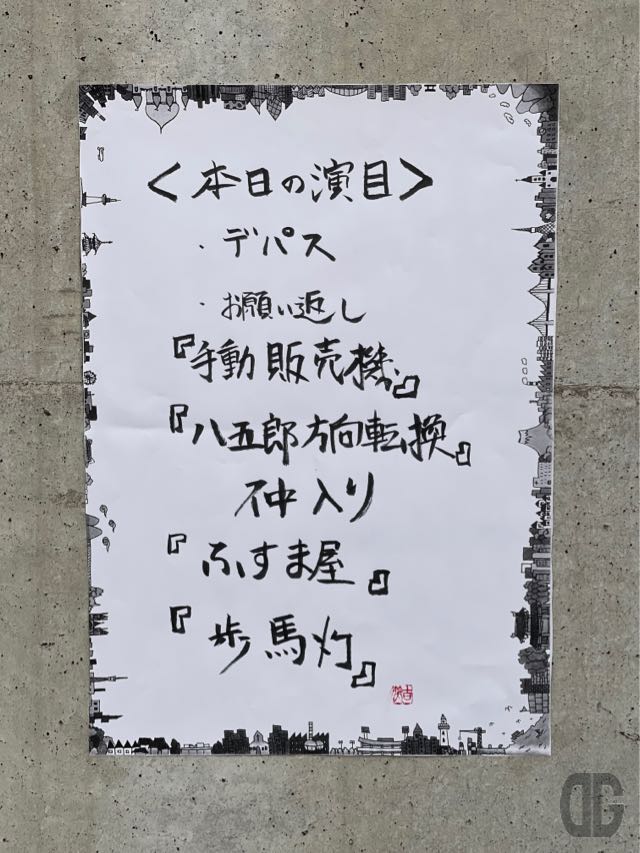 <本日の演目>
・デパス
・お願い返し
『手動販売機』
『八五郎方向転換』
仲入り
『ふすま屋』
『歩馬灯』
DG